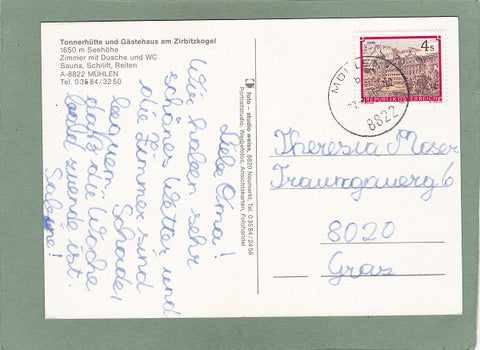 Tonnerhütte und Gästehaus am Zirbitzkogel
1650 m Seehöhe
Zimmer mit Dusche und WC
Sauna, Schilift, Reiten
A-8822 MÜHLEN
Tel. 03584/3250
Liebe Oma!
Wir haben sehr
schönes Wetter und
die Zimmer sind
bequem. Schade,
daß die Woche
bald zuende ist.
Sabine!
foto - studio weiss, 8820 Neumarkt, Tel. 03584/2456
Portraitstudio, Werbefotos, Ansichtskarten, Fotohandel
4 S
REPUBLIK ÖSTERREICH
MÜHLEN
8822
Theresia Moser
Traungauerg. 6
8020
Graz